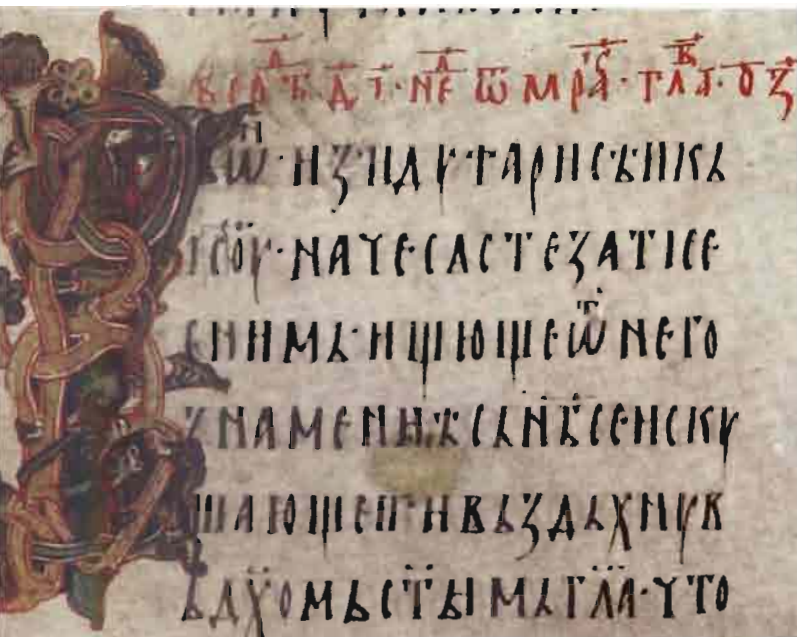 врѣ д҃ і· не ѿ мра· гла· о з
ѿ· изиду· парисѣи кь
ісоу· начесастезатісе
снимь· ищющеѿ него
знамениѣ сь нб҃се иску
шающеи· ивьздьхнув
ьдх҃омьст҃ымьгл҃а· что